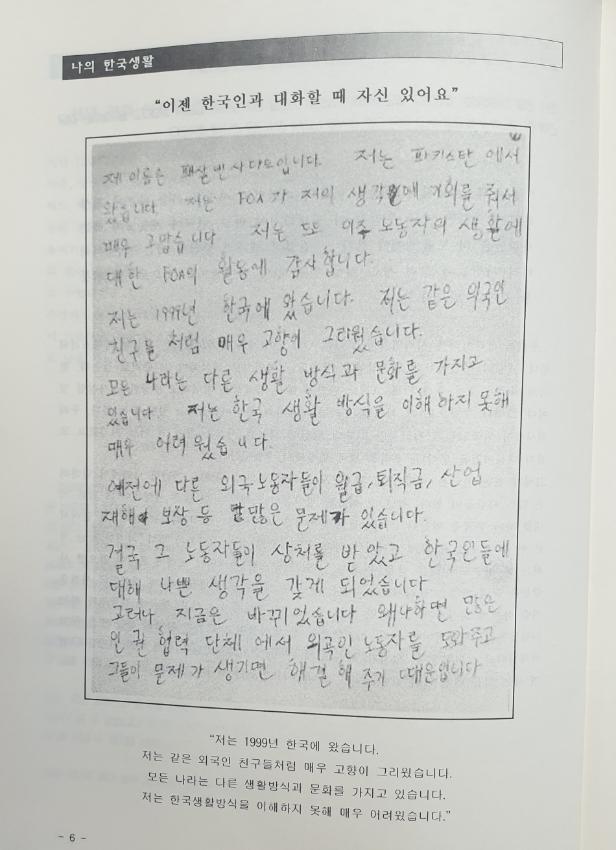 나의 한국생활
“이젠 한국인과 대화할 때 자신 있어요”
제 이름은 입니다. 저는 파키스탄에서
왔습니다. 저는 FOA가 저의 생각에 기회를 줘서
매우 고맙습니다 저는 또 이주 노동자의 생활에
대한 FOA의 활동에 감사합니다.
저는 1999년 한국에 왔습니다. 저는 같은 외국인
친구들 처럼 매우 고향이 그리웠습니다.
모든 나라는 다른 생활 방식과 문화를 가지고
있습니다 저는 한국 생활 방식을 이해하지 못해
매우 어려웠습니다.
예전에 다른 외국노동자들이 월급, 퇴직금, 산업
재해 보상 등 많은 문제가 있습니다.
결국 그 노동자들이 상처를 받았고 한국인들에
대해 나쁜 생각을 갖게 되었습니다
그러나 지금은 바뀌었습니다 왜냐하면 많은
인권 협력 단체에서 외국인 노동자를 도와주고
그들이 문제가 생기면 해결해 주기 때문입니다
“저는 1999년 한국에 왔습니다.
저는 같은 외국인 친구들처럼 매우 고향이 그리웠습니다.
모든 나라는 다른 생활방식과 문화를 가지고 있습니다.
저는 한국생활방식을 이해하지 못해 매우 어려웠습니다.”
- 6 -